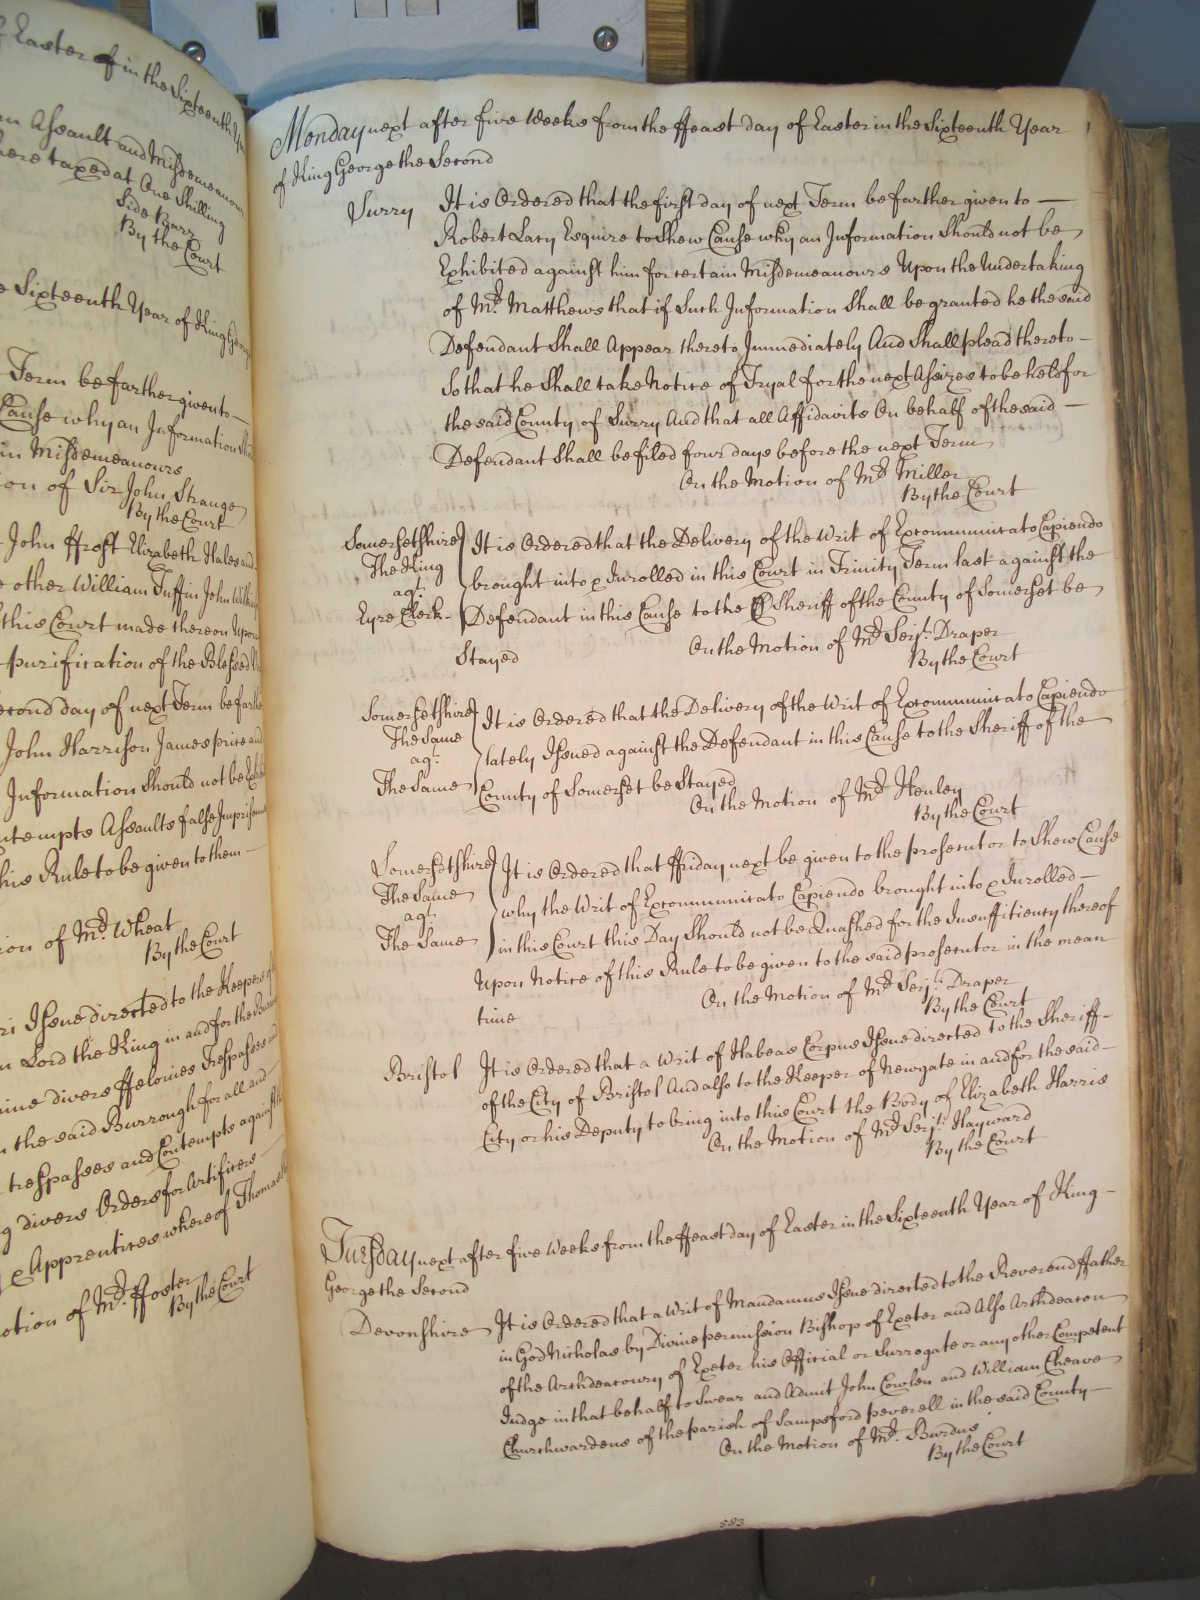 of Easter in the Sixteenth
an Assault and Misdemeanour
here taxed at One Shilling
Side Barr
By the Court
Sixteenth Year of King George
Term be farther given to
Cause why an Information
in Misdemeanours
ion of Sir John Strange
By the Court
John ffrost Elizabeth Hales and
other William Tuffin John
this Court made thereon Upon
purification of the Blessed
second day of next Term be farther
John Harrison James price and
Information Should not be
Contempts Assaults false
this Rule to be given to them
ion of Mr. Wheat
By the Court
Issue directed to the Keeper of
Lord the King in and for the
divers ffelonies Trespasses and
the said Burrough for all and
trespasses and Contempts against
divers Orders for Artificers
& Apprentices whereof Thomas
otion of Mr. ffoster
By the Court
Monday next after five Weeks from the ffeast day of Easter in the Sixteenth Year
of King George the Second
Surry It is Ordered that the first day of next Term be farther given to
Robert Lacy Esquire to Shew Cause why an Information Should not be
Exhibited against him for certain Misdemeanours Upon the Undertaking
of Mr. Matthews that if Such Information Shall be granted he the said
Defendant Shall Appear thereto Immediately And Shall plead thereto
So that he Shall take Notice of Tryal for the next Assizes to be held for
the said County of Surry And that all Affidavits On behalf of the said
Defendant Shall be filed four days before the next Term
On the Motion of Mr. Miller
By the Court
Somersetshire It is Ordered that the Delivery of the Writ of Excommunicato Capiendo
The King brought into & Inrolled in this Court in Trinity Term last against the
agt.
Eyre Clerk Defendant in this Cause to the Sheriff of the County of Somerset be
Stayed On the Motion of Mr. Serjt. Draper
By the Court
Somersetshire It is Ordered that the Delivery of the Writ of Excommunicato Capiendo
The Same lately Issued against the Defendant in this Cause to the Sheriff of the
agt.
The Same County of Somerset be Stayed
On the Motion of Mr. Henley
By the Court
Somersetshire It is Ordered that ffriday next be given to the prosecutor to Shew Cause
The Same why the Writ of Excommunicato Capiendo brought into & Inrolled
agt.
The Same in this Court this Day Should not be Quashed for the Insufficiency thereof
Upon Notice of this Rule to be given to the said prosecutor in the mean
time On the Motion of Mr. Serjt. Draper
By the Court
Bristol It is Ordered that a Writ of Habeas Corpus Issue directed to the Sheriff
of the City of Bristol And also to the Keeper of Newgate in and for the said
City or his Deputy to bring into this Court the Body of Elizabeth Harris
On the Motion of Mr. Serjt. Hayward
By the Court
Tuesday next after five Weeks from the ffeast day of Easter in the Sixteenth Year of King
George the Second
Devonshire It is Ordered that a Writ of Mandamus Issue directed to the Reverend ffather
in God Nicholas by Divine permission Bishop of Exeter and Also Archdeacon
of the Archdeaconry of Exeter his Official or Surrogate or any other Competent
Judge in that behalf to Swear and Admit John Cowlen and William Cheave
Churchwardens of the parish of Sampford peverell in the said County
On the Motion of Mr. Burdus
By the Court
583